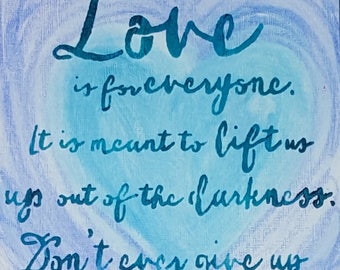 Love
is for everyone.
It is meant to lift us
up out of the darkness.
Don't ever give up